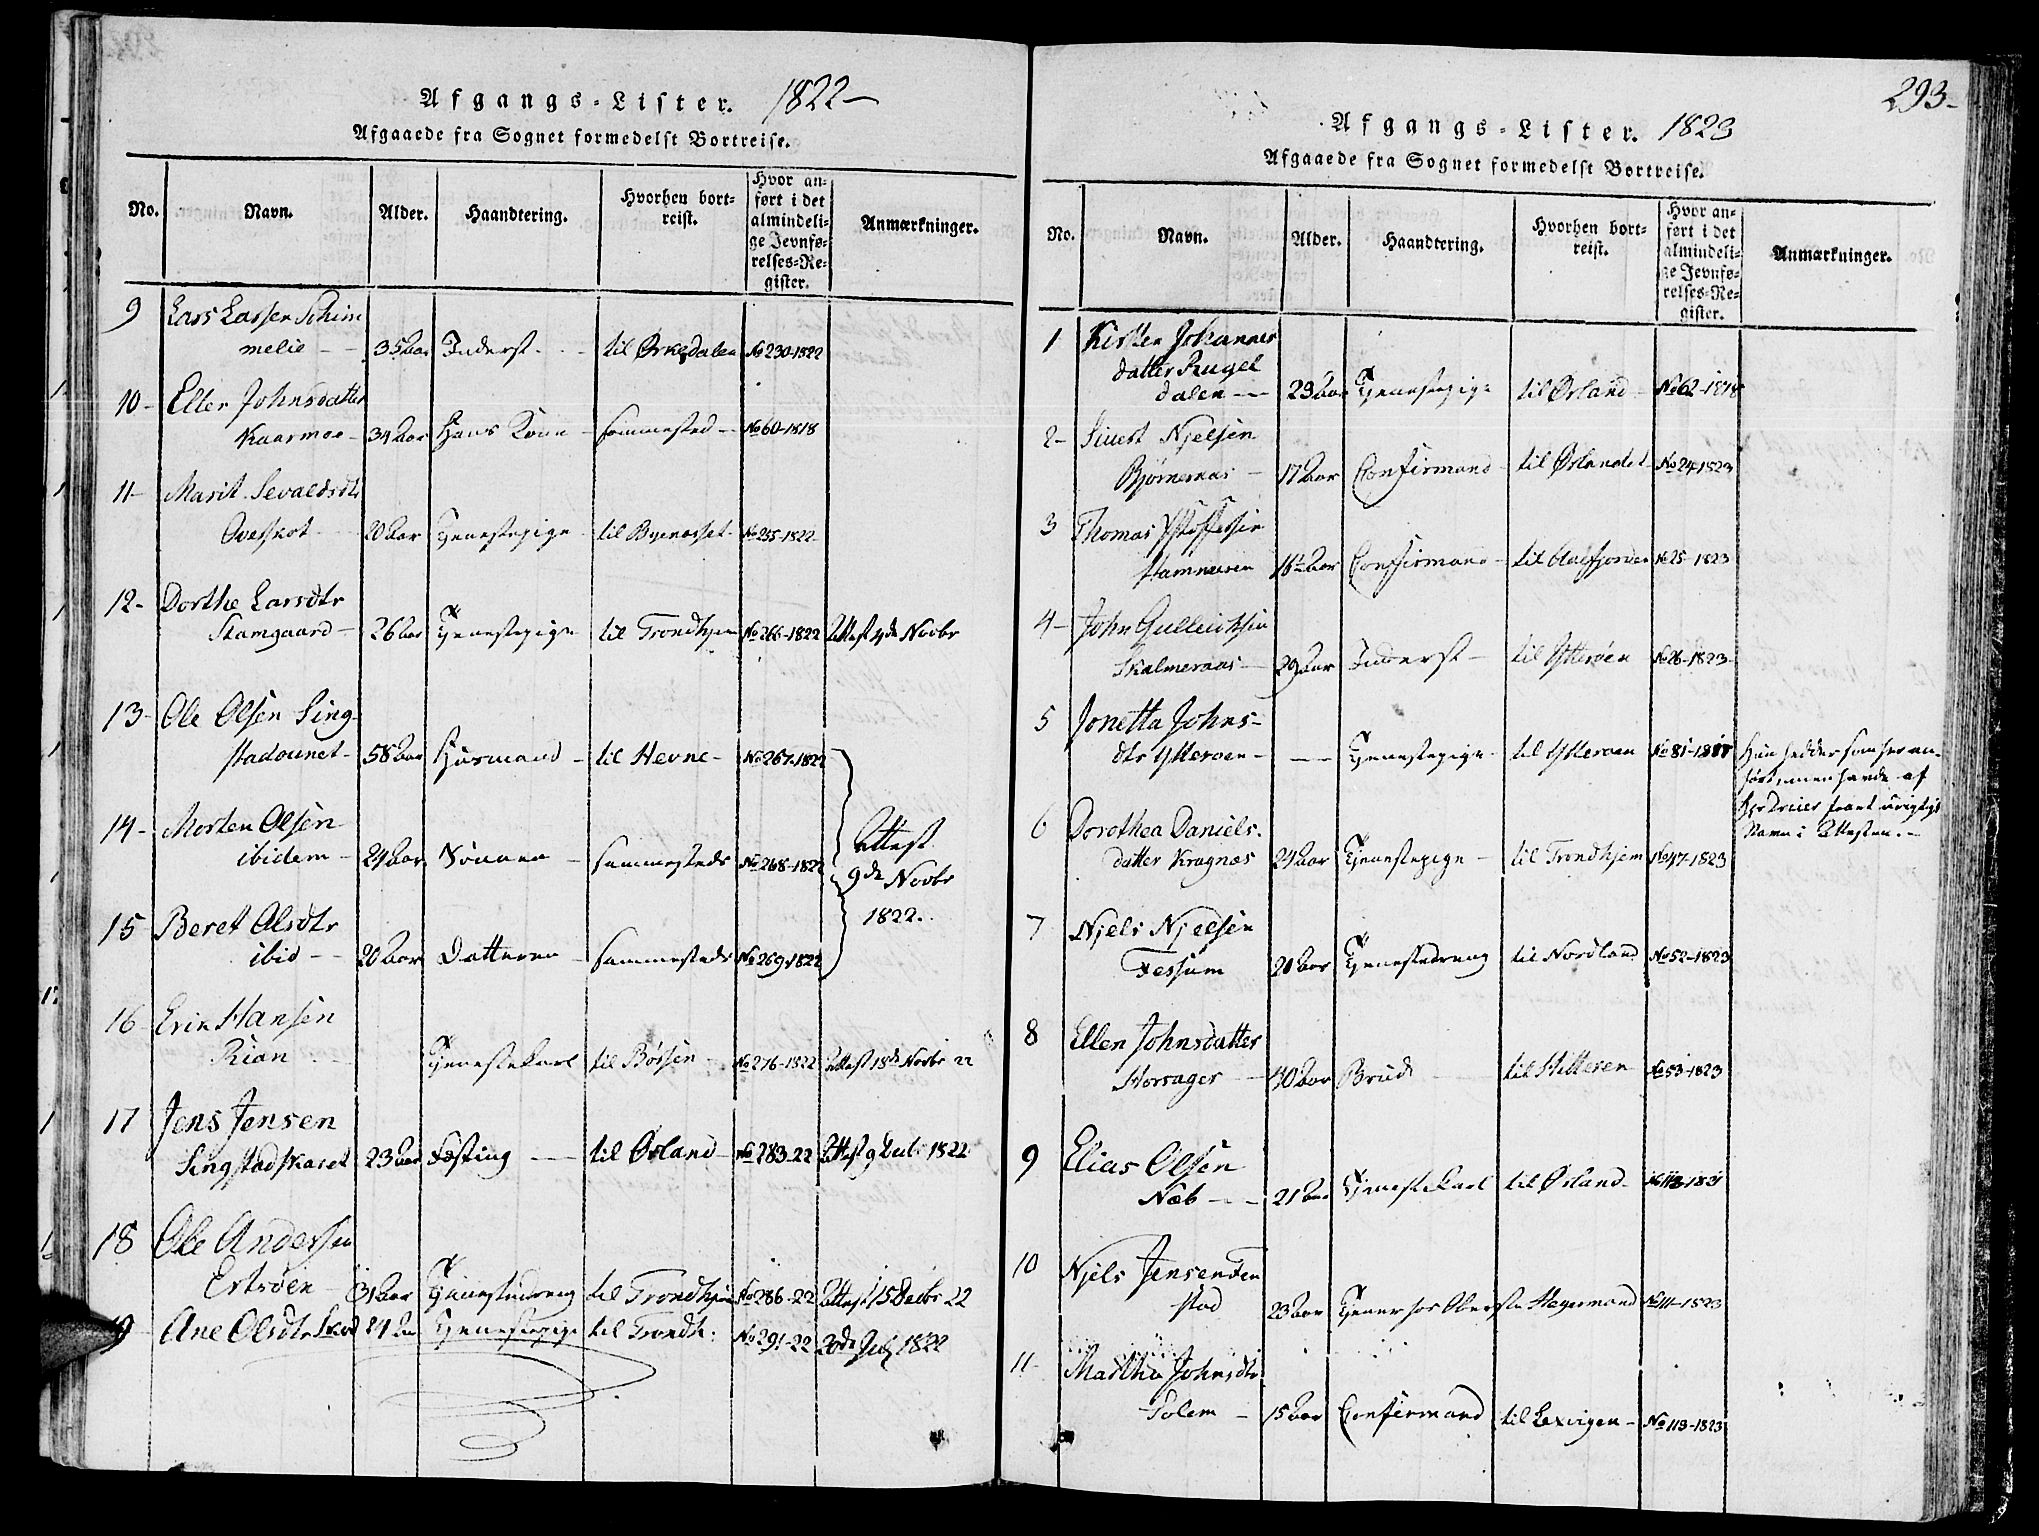 Afgangs-Lister. 1822-
Afgaaede fra Sognet formedelst Bortreise.
No. Navn. Alder. Haandtering. Hvorhen bortreist. Hvor anført i det almindelige Jevnførelses-Register. Anmærkninger.
9 Lars Larsen Schim
melie - 35 Aar Inderst - til Ørkedalen No 230-1822
10- Ellen Johnsdatter
Kaarmoe - 34 Aar Hans Kone - sammested - No 60-1818
11- Marit Sevaldsdtr
20 Aar Tjenestepige - til Byenesset No 235-1822
12- Dorthe Larsdtr
Skamgaard - 26 Aar Tjenestepige til Trondhjem No 266-1822 Attest 4de Novbr
13- Ole Olsen Sing-
stadounet - 58 Aar Huusmand - til Hevne - No 267-1822
14- Morten Olsen
ibidem - 24 Aar Sönnen - sammesteds No 268-1822 Attest
9de Novbr
1822.
15 Beret Olsdtr
ibid - - 20 Aar Datteren - sammesteds No 269-1822
16- Erik Hansen
Rian Tjenestekarl til Børsen - No 276-1822 Attest 18de Novbr 22
17 Jens Jensen
Singstadskaret 23 Aar Fosting - til Ørland - No 283-22 Attest 9 Decbr 1822
18 Ole Andersen
Ertsöen - 31 Aar Tjenestedreng til Trondhjem No 286-22 Attest 15 Decbr 22
19- Ane Olsdtr Skod 24 Aar Tjenestepige til Trondh: No 291-22 20de July 1822
293-
Afgangs-Lister. 1823
Afgaaede fra Sognet formedelst Bortreise.
No. Navn. Alder. Haandtering. Hvorhen bortreist. Hvor anført i det almindelige Jevnførelses-Register. Anmærkninger.
1 Kirsten Johannes
datter Rugel
dalen - 23 Aar Tjenestepige til Ørland - No 62-1818
2- Siuert Njelsen
Björnernas - 17 Aar Confirmand - til Ørlandet - No 24-1823
3 Thomas
Hamneren 16 Aar Confirmand - No 25-1823
4- John
Skalmeraas - 29 Aar Inderst - til Ytteröen No 26-1823-
5 Jonetta Johns-
dtr Ytteroen - - - Tjenestepige - til Ytteroen No 81-18 Hun hedder som her an-
ført, men havde af
Hr Dreier faaet urigtigt
Navn i Attesten. -
6 Dorothea Daniels.
datter Kragnæs 24 Aar Tjenestepige - til Trondhjem No 47-1823
7 Njels Njelsen
Fessum 20 Aar Tjenestedreng til Nordland No 52-1823
8 Ellen Johnsdatter
Horsager - 40 Aar Brud - til Hitteren No 53-1823
9 Elias Olsen
Næb - - 21 Aar Tjenestekarl til Ørland -
10 Njels Jensen Ten
stad 23 Aar Tjener hos Oberste Hegermand No 111-1823
11- Martha Johnsdtr
Solem - 15 Aar Confirmand til Lexvigen - No 113-1823